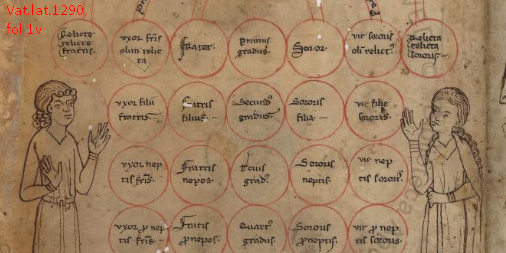 Vat.lat.1290,
fol 1v
Relicte
relicte
fratris.
vxor fris
olim relic
ta
frater.
Primus
gradus.
Soror.
vir sororis
oli relict9.
Relicta
relicta
sororis.
vxor filii
fratris.
fratris
filius.
Secund9
gradus
Sororis
filia.
vir filie
sororis.
vxor nep
tis fris.
fratris
nepos.
Sororis
neptis.
vir nep
tis soror.
vxor ꝓ nep
tis fris
fratris
ꝓ nepos.
Quart9
gradus.
Sororis
ꝓ neptis.
vir ꝓ nep
tis sororis.